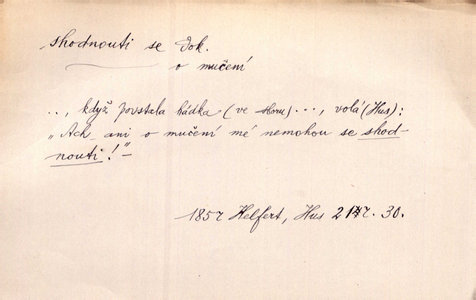 shodnouti se dok.
o mučení
..., když povstala hádka (ve sboru) ..., volá (Hus):
„Ach ani o mučení mé nemohou se shod-
nouti!"–
1857 Helfert, Hus 30.